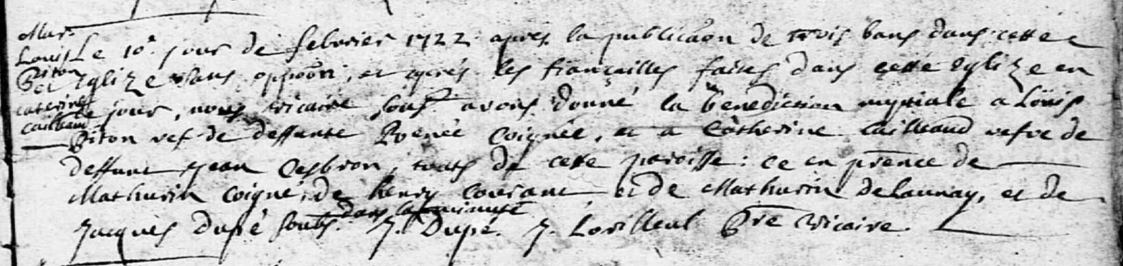 Mar.
Louis
Piton
et
caterine
cailleau
Le 10e jour de febvrier 1722 apres la publicaon de trois bans dans cette
Eglize sans oppoon, et apres les fiancailles faites dans cette Eglize en
ce jour, nous vicaire sous. avons donné la benediction nuptiale a Loüis
Piton vef de deffunte Renée Coignée, et a Catherine Cailleaud vefve de
deffunt Jean Cesbron, touts de cette paroisse: ce en pnce de
Mathurin Coigné, de henry Courant et de Mathurin delaunay, et de
Jacques Dupé soubs. dans la minutte J. Dupé. J. Lovilleul Pbre vicaire